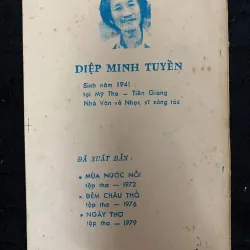 DIỆP MINH TUYỀN
Sinh năm 1941
tại Mỹ Tho - Tiền Giang
Nhà Văn và Nhạc sĩ sáng tác
ĐÃ XUẤT BẢN :
* MÙA NƯỚC NỔI
tập thơ - 1972
* ĐÊM CHÂU THỔ
tập thơ - 1976
* NGÀY THƠ
tập thơ - 1979